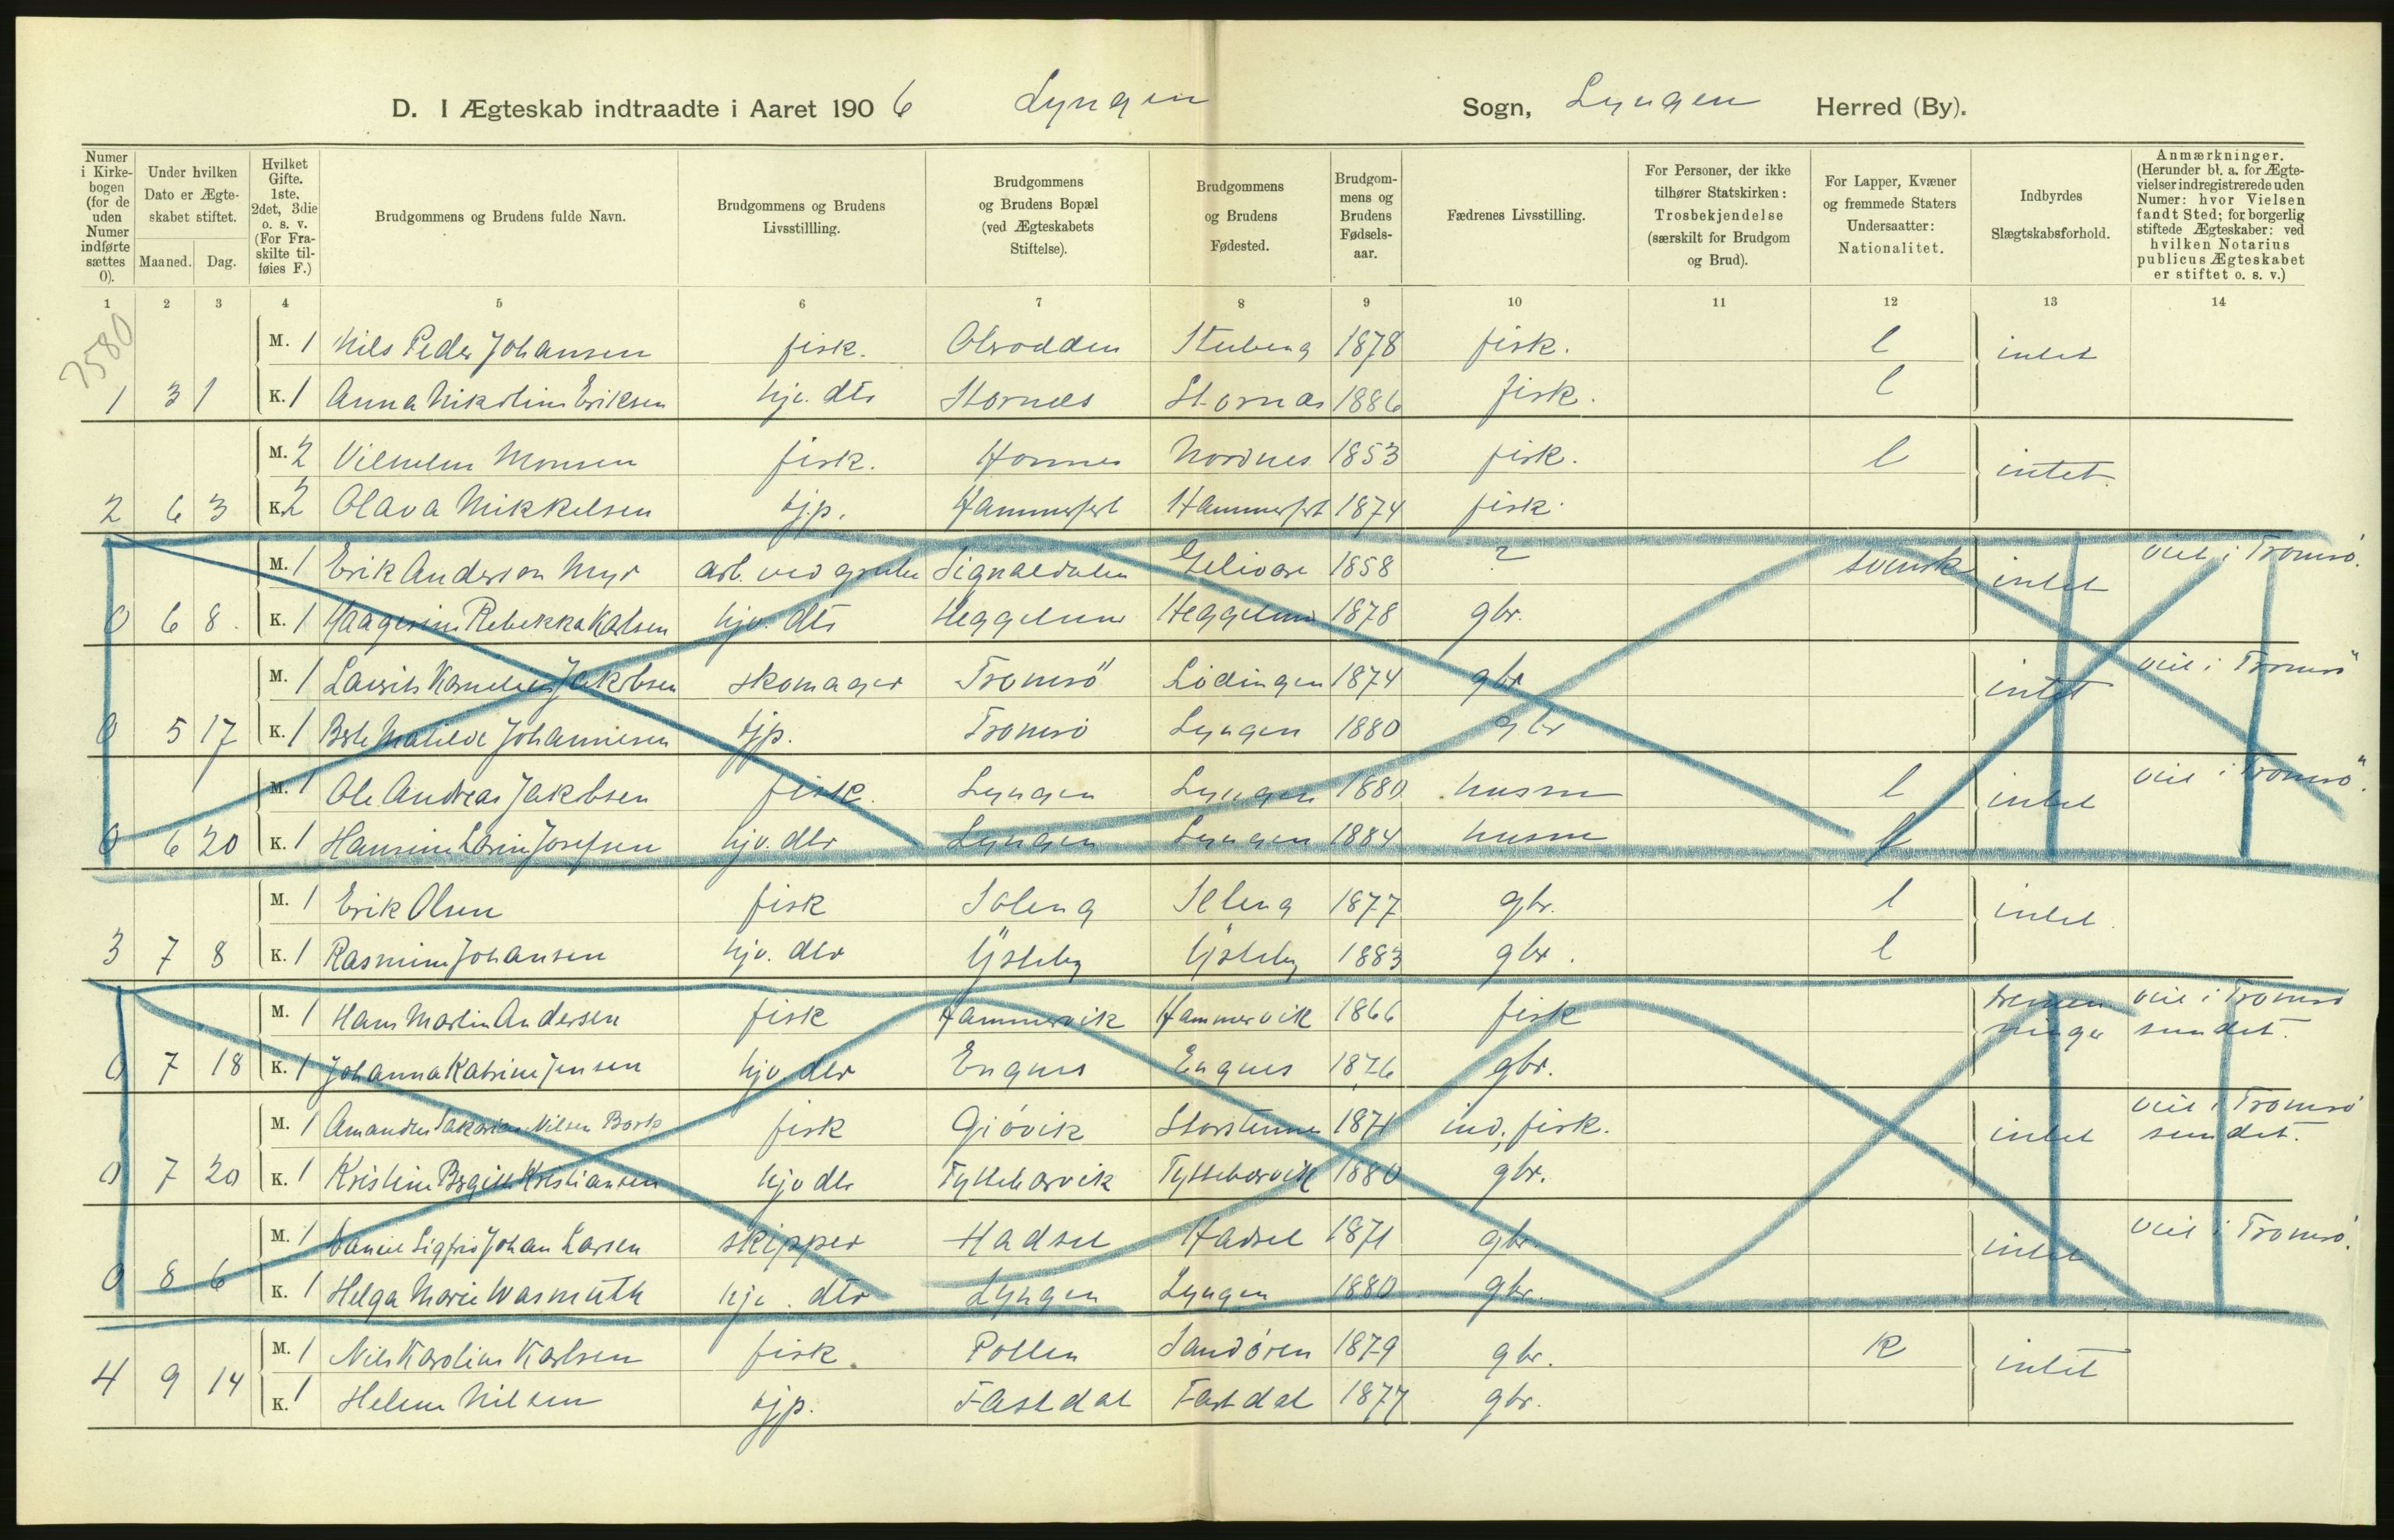 D. I Ægteskab indtraadte i Aaret 1906 Lyngen Sogn, Lyngen Herred (By).
Numer i Kirke-bogen (for de uden Numer indførte sættes 0).
Under hvilken Dato er Ægte-skabet stiftet.
Maaned. Dag.
Hvilket Gifte. 1ste, 2det, 3die o. s. v. (For Fra-skilte til-føies F.)
Brudgommens og Brudens fulde Navn.
Brudgommens og Brudens Livsstillling.
Brudgommens og Brudens Bopæl (ved Ægteskabets Stiftelse).
Brudgommens og Brudens Fødested.
Brudgom-mens og Brudens Fødsels-aar.
Fædrenes Livsstilling.
For Personer, der ikke tilhører Statskirken: Trosbekjendelse (særskilt for Brudgom og Brud).
For Lapper, Kvæner og fremmede Staters Undersaatter: Nationalitet.
Indbyrdes Slægtskabsforhold.
Anmærkninger. (Herunder bl. a. for Ægte-vielser indregistrerede uden Numer: hvor Vielsen fandt Sted; for borgerlig stiftede Ægteskaber: ved hvilken Notarius publicus Ægteskabet er stiftet o. s. v.)
1 2 3 4 5 6 7 8 9 10 11 12 13 14
7580
M. 1 Nils Peder Johansen fisk. Olsrodden Stubeng 1878 fisk. l intet
1 3 1 K. 1 Anna Nikoline Eriksen hjv. dtr Stornæs Stornæs 1886 fisk. l
M. 2 Vilhelm Monsen fisk. Hornes Nordnes 1853 fisk. l intet
2 6 3 K. 2 Olava Mikkelsen tjp. Hammerfest Hammerfest 1874 fisk.
M. 1 Erik Anderson Myr arb. ved gruber Signaldalen Gelivare 1858 ? svensk intet viet i Tromsö.
0 6 8. K. 1 Rebekka Karlsen hjv. dtr Heggelund Heggelund 1878 gbr.
M. 1 Laurits Kornelius Jakobsen skomager Tromsö Lödingen 1874 gbr intet viet i Tromsö
0 5 17 K. 1 Matilde Johannesen tjp. Tromsö Lyngen 1880 gbr
M. 1 Ole Andreas Jakobsen fisk. Lyngen Lyngen 1880 husm l intet viet i Tromsö.
0 6 20 K. 1 Hansine Josefsen hjv. dtr Lyngen Lyngen 1884 husm l
M. 1 Erik Olsen fisk Soleng Soleng 1877 gbr. l intet.
3 7 8 K. 1 Rasmine Johansen hjv. dtr Ysteby Ysteby 1883 gbr. l
M. 1 Hans Martin Andersen fisk Hammervik Hammervik 1866 fisk tremenninger viet i Tromsö
sundet.
0 7 18 K. 1 Johanna Katrine Jensen hjv. dtr Engnes Engnes 1876 gbr.
M. 1 Amandus Sakarias Nilsen Bork fisk Gjövik Storstennes 1871 ind, fisk. intet viet i Tromsö
sundet.
0 7 20 K. 1 Kristine Kristiansen hjv dtr Tyttebærvik Tyttebærvik 1880 gbr.
M. 1 Daniel Sigfrid Johan Larsen skipper Hadsel Hadsel 1871 gbr. intet viet i Tromsö.
0 8 6 K. 1 Helga Marie Wasmuth hjv. dtr Lyngen Lyngen 1880 gbr.
M. 1 Nils Karolius Karlsen fisk. Pollen Sandören 1879 gbr. k intet
4 9 14 K. 1 Helene Nilsen tjp. Fastdal Fastdal 1877 gbr.